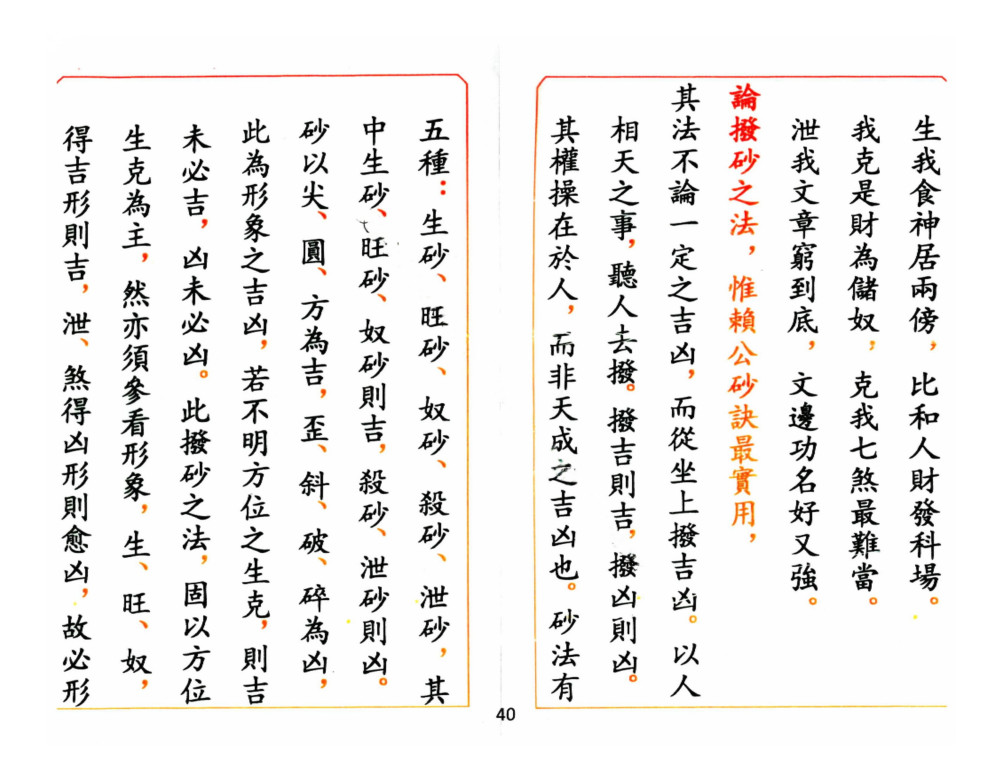 生我食神居兩傍，比和人財發科場。
我克是財為儲奴，克我七煞最難當。
泄我文章窮到底，文邊功名好又強。
論撥砂之法，惟賴公砂訣最實用，
其法不論一定之吉凶，而從坐上撥吉凶。以人
相天之事，聽人去撥。撥吉則吉，撥凶則凶。
其權操在於人，而非天成之吉凶也。砂法有
五種：生砂、旺砂、奴砂、殺砂、泄砂，其
中生砂、旺砂、奴砂則吉，殺砂、泄砂則凶。
砂以尖、圓、方為吉，歪、斜、破、碎為凶，
此為形象之吉凶，若不明方位之生克，則吉
未必吉，凶未必凶。此撥砂之法，固以方位
生克為主，然亦須參看形象，生、旺、奴，
得吉形則吉，泄、煞得凶形則愈凶，故必形
40